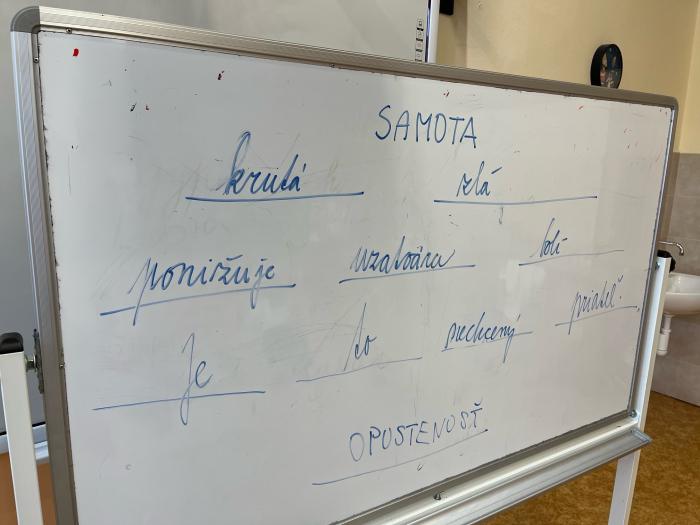 SAMOTA
krutá zlá
ponižuje uzatvára bolí
Je to nechcený priateľ.
OPUSTENOSŤ